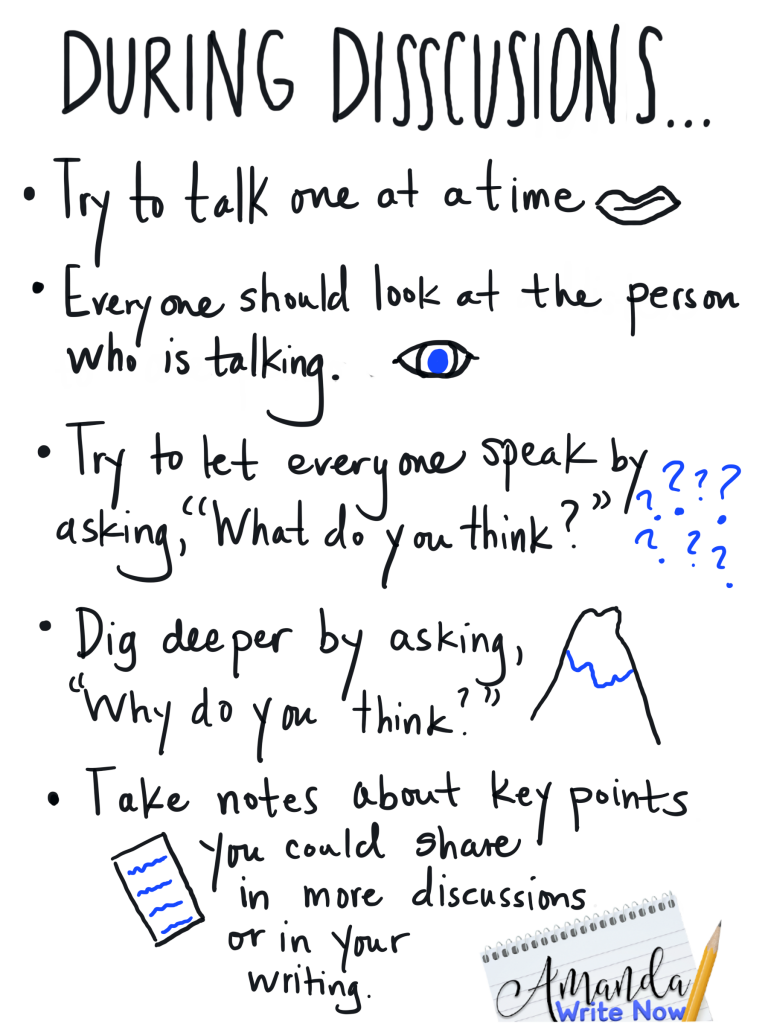 DURING DISSCUSIONS...
• Try to talk one at a time
• Everyone should look at the person
who is talking.
• Try to let everyone speak by
asking, "What do you think?"
???
???
• Dig deeper by asking,
"Why do you think?"
• Take notes about key points
you could share
in more discussions
or in your
writing.
Amanda
Write Now